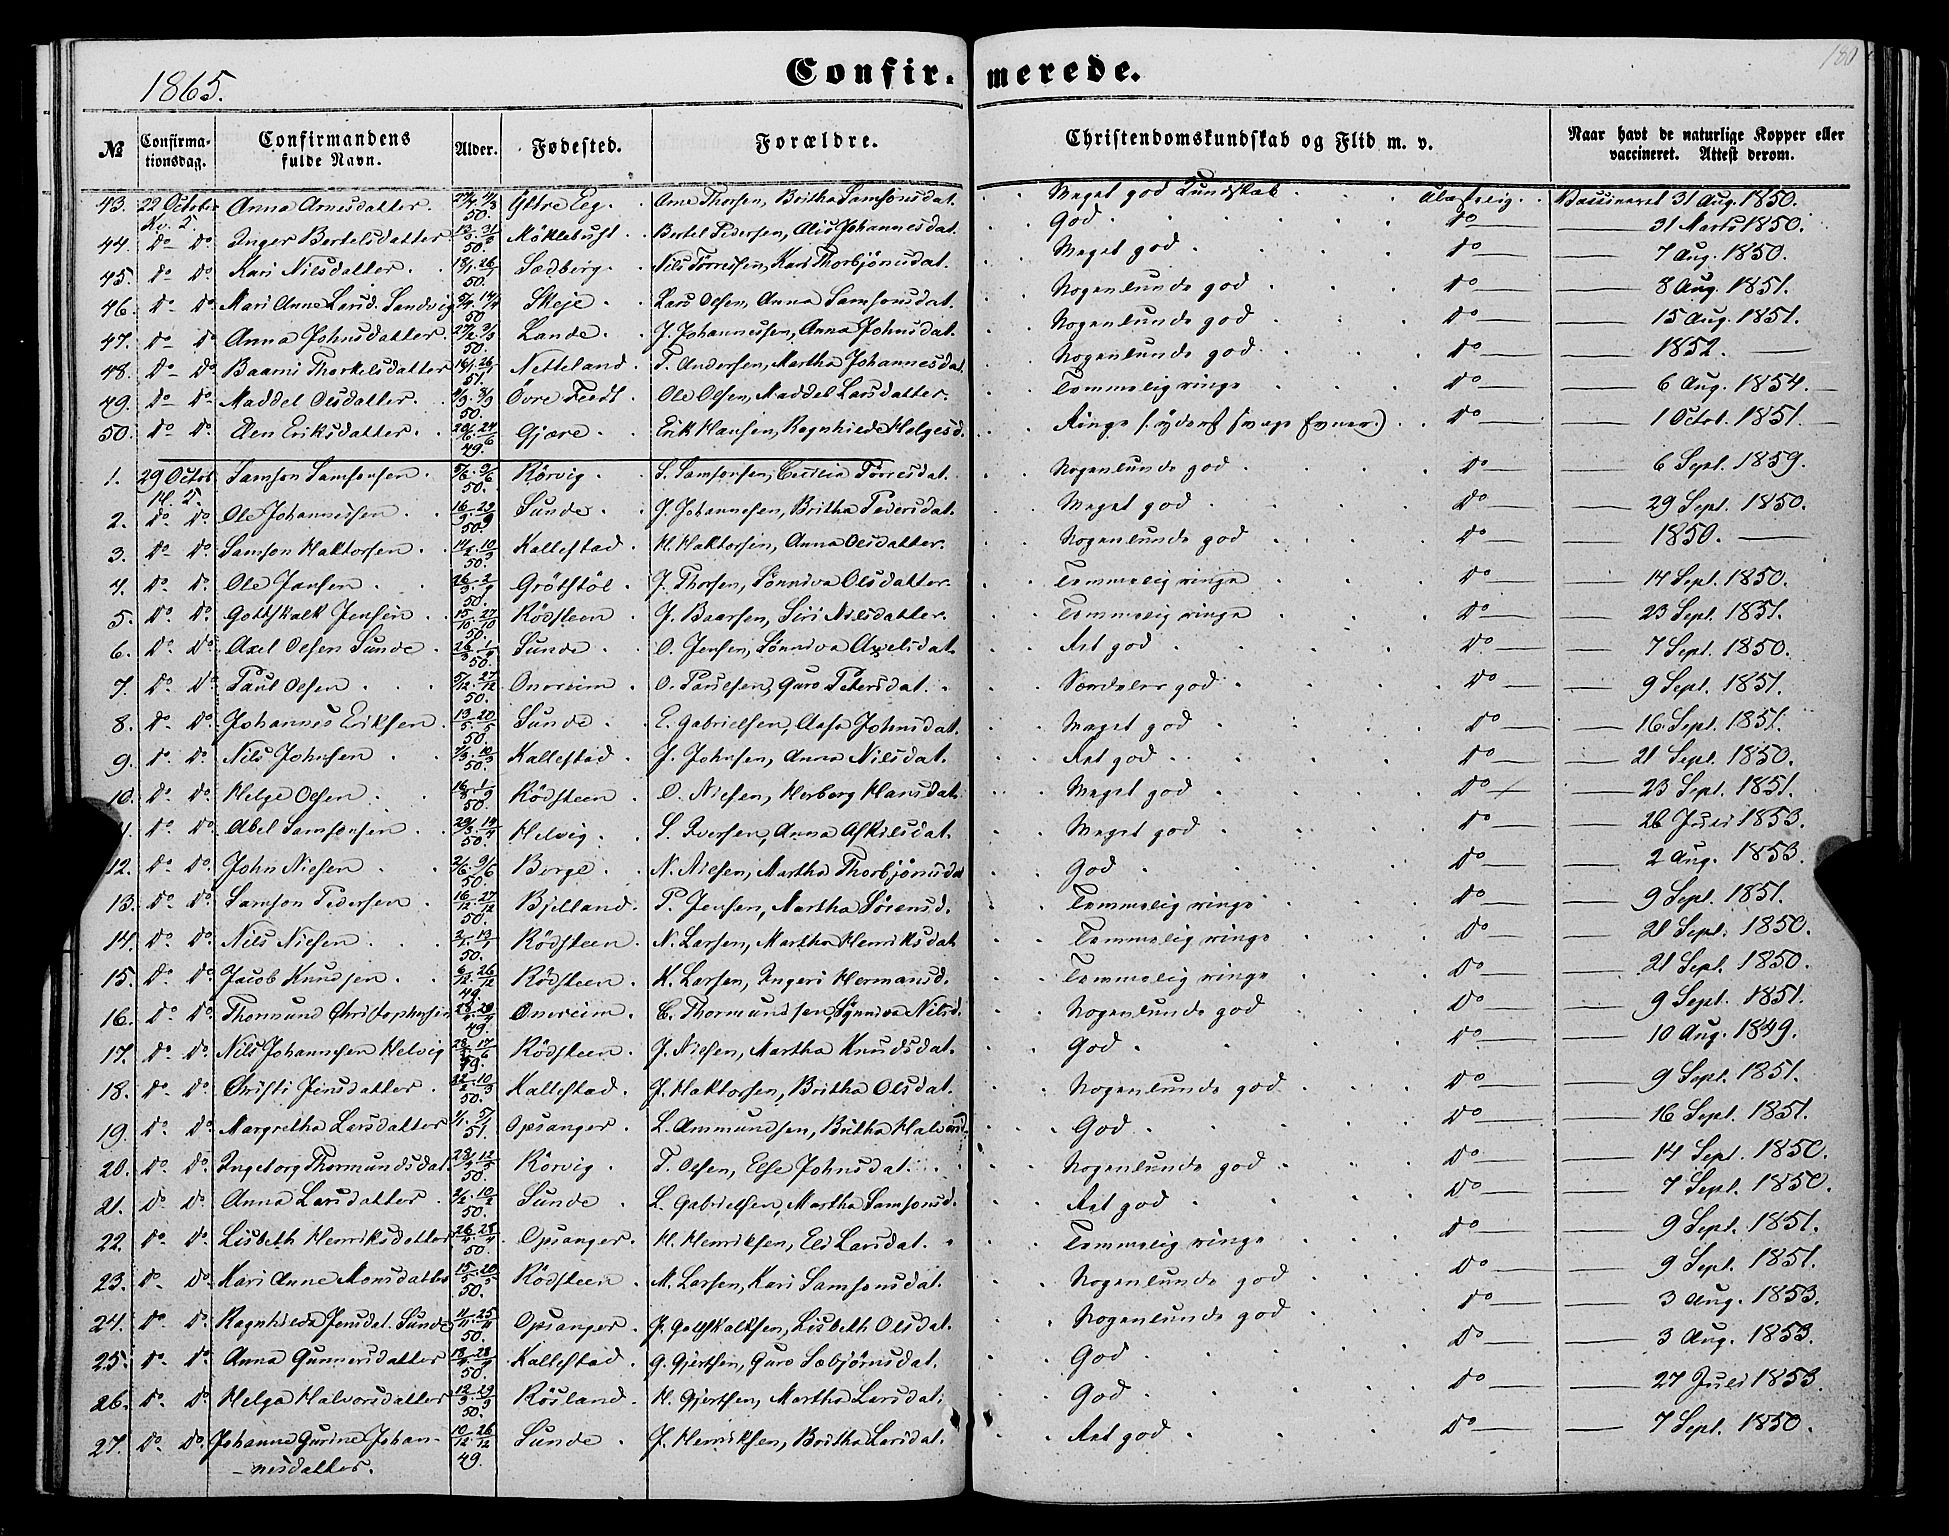 180
1865.
Confir- merede.
№ Confirma-tionsdag. Confirmandens fulde Navn. Alder. Fødested. Forældre. Christendomskundskab og Flid m. v. Naar havt de naturlige Kopper eller vaccineret. Attest derom.
43. 22 Octobr Anna Arnesdatter. 50. Yttre Eeg. Arne Thorsen, Britha Samsonsdat. Meget god Kundskab. Vaccineret 31 Aug. 1850.
Kv. S.
44. Do Do Inger Bertelsdatter 50. Möklebust. Bertel Pedersen, Alis Johannesdat. God Do 31 Marts 1850.
45. Do Do Kari Nilsdatter. 50. Sædberg. Nils Törressen, Kari Thorbjönsdat. Meget god Do 7 Aug. 1850.
46. Do Do Mari Anne Larsd. Sandvig 50 Skeje. Lars Olsen, Anna Samsonsdat. Nogenlunde god Do 8 Aug. 1851.
47. Do Do Anna Johnsdatter. 50. Lande. J. Johannessen, Anna Johnsdat. Nogenlunde god Do 15 Aug. 1851.
48. Do Do Baarni Thorkelsdatter 51. Netteland. T. Andersen, Martha Johannesdat. Nogenlunde god Do 1852.
49. Do Do Maddel Olsdatter. 50. Övre Feedt. Ole Olsen, Maddel Larsdatter. Temmelig ringe Do 6 Aug. 1854.
50. Do Do Elen Eriksdatter. 49. Gjære. Erik Hansen, Ragnhilde Helgesd. Ringe (: yderst svage Evner.) Do 1 Octob. 1851.
1. 29 Octob Samson Samsonsen. 50. Rörvig. S. Samsonsen, Cecilia Törresdat. Nogenlunde god Do 6 Sept. 1859.
2. Do Do Ole Johannessen. 50 Sunde. J. Johannesen, Britha Pedersdat. Meget god Do 29 Sept. 1850.
3. Do Do Samson Haktorsen. 50. Kallestad. H. Haktorsen, Anna Olsdatter. Nogenlunde god Do 1850.
4. Do Do. Ole Jansen. 50. Grötstöl. J. Thorsen, Sönniva Olsdatter. Temmelig ringe Do 14 Sept. 1850.
5. Do Do. Gottskalk Jensen. 50. Rödsteen. J. Baarsen, Siri Nilsdatter. Temmelig ringe Do 23 Sept. 1851.
6. Do Do Axel Olsen Sunde. 50. Sunde. O. Jensen, Sönniva Axelsdat. Ret god Do 7 Sept. 1850.
7. Do Do. Paul Olsen 50. Onereim. O. Paulsen, Guro Petersdat. Særdeles god Do 9 Sept. 1851.
8. Do Do. Johannes Eriksen. 50. Sunde. E. Gabrielsen, Aase Johnsdat. Meget god Do 16 Sept. 1851.
9. Do Do. Nils Johnsen 50. Kallestad. J. Johnsen, Anna Nilsdat. Ret god Do 21 Sept. 1850.
10. Do Do. Helge Olsen 50. Rödsteen. O. Nielsen, Herborg Hansdat. Meget god Do 23 Sept. 1851.
11. Do Do. Abel Samsonsen. 50. Helvig. S. Iversen, Anna Askilsdat. Meget god Do 26 Juli 1853.
12. Do Do. John Nielsen 50. Borge. N. Nielsen, Martha Thorbjönsdat God Do 2 Aug. 1853.
13. Do Do. Samson Pedersen. 50. Bjelland. P. Jensen, Martha Sörensd. Temmelig ringe Do 9 Sept. 1851.
14. Do Do. Nils Nielsen 50. Rödsteen. N. Larsen, Martha Henriksdat Temmelig ringe Do 21 Sept. 1850.
15. Do Do. Jacob Knudsen. 49. Rödsteen. K. Larsen, Ingeri Hermansd. Temmelig ringe Do 21 Sept. 1850.
16. Do Do. Thormund Christophersen 49. Onereim. C. Thormundsen, Synniva Nilsd. Nogenlunde god Do 9 Sept. 1851.
17. Do Do. Nils Johannesen Helvig 49. Rödsteen. J. Nielsen, Martha Knudsdat. God Do 10 Aug. 1849.
18. Do Do. Christi Jensdatter. 50. Kallestad. J. Haktorsen, Britha Olsdat. Nogenlunde god Do 9 Sept. 1851.
19. Do Do. Margretha Larsdatter 51. Opsanger. L. Ammundsen, Britha Halvorsd. God Do 16 Sept. 1851.
20. Do Do. Ingeborg Thormundsdat. 50. Rörvig. T. Olsen, Else Johnsdat. Nogenlunde god Do 14 Sept. 1850.
21. Do Do. Anna Larsdatter. 50. Sunde. L. Gabrielsen, Martha Samsonsd. Ret god Do 7 Sept. 1850.
22. Do Do. Lisbeth Henriksdatter 50. Opsanger. H. Henriksen, Eli Larsdat. Temmelig ringe Do 9 Sept. 1851.
23. Do Do. Kari Anne Monsdatter 50. Rödsteen. M. Larsen, Kari Samsonsdat. Nogenlunde god Do 9 Sept. 1851.
24. Do Do. Ragnhilde Jensdat. Sunde 50. Opsanger. J. Gottskalksen, Lisbeth Olsdat. Nogenlunde god Do 3 Aug. 1853.
25. Do Do. Anna Gunnersdatter 50. Kallestad. G. Gjertsen, Guro Sæbjörnsdat. God Do 3 Aug. 1853.
26. Do Do. Helga Halvorsdatter 50. Rösland. H. Gjertsen, Martha Larsdat. God Do 27 Juli 1853.
27. Do Do. Johanne Gurine Johan- 49. Sunde. J. Henriksen, Britha Larsdat. Ret god Do 7 Sept. 1850.
-nesdatter.